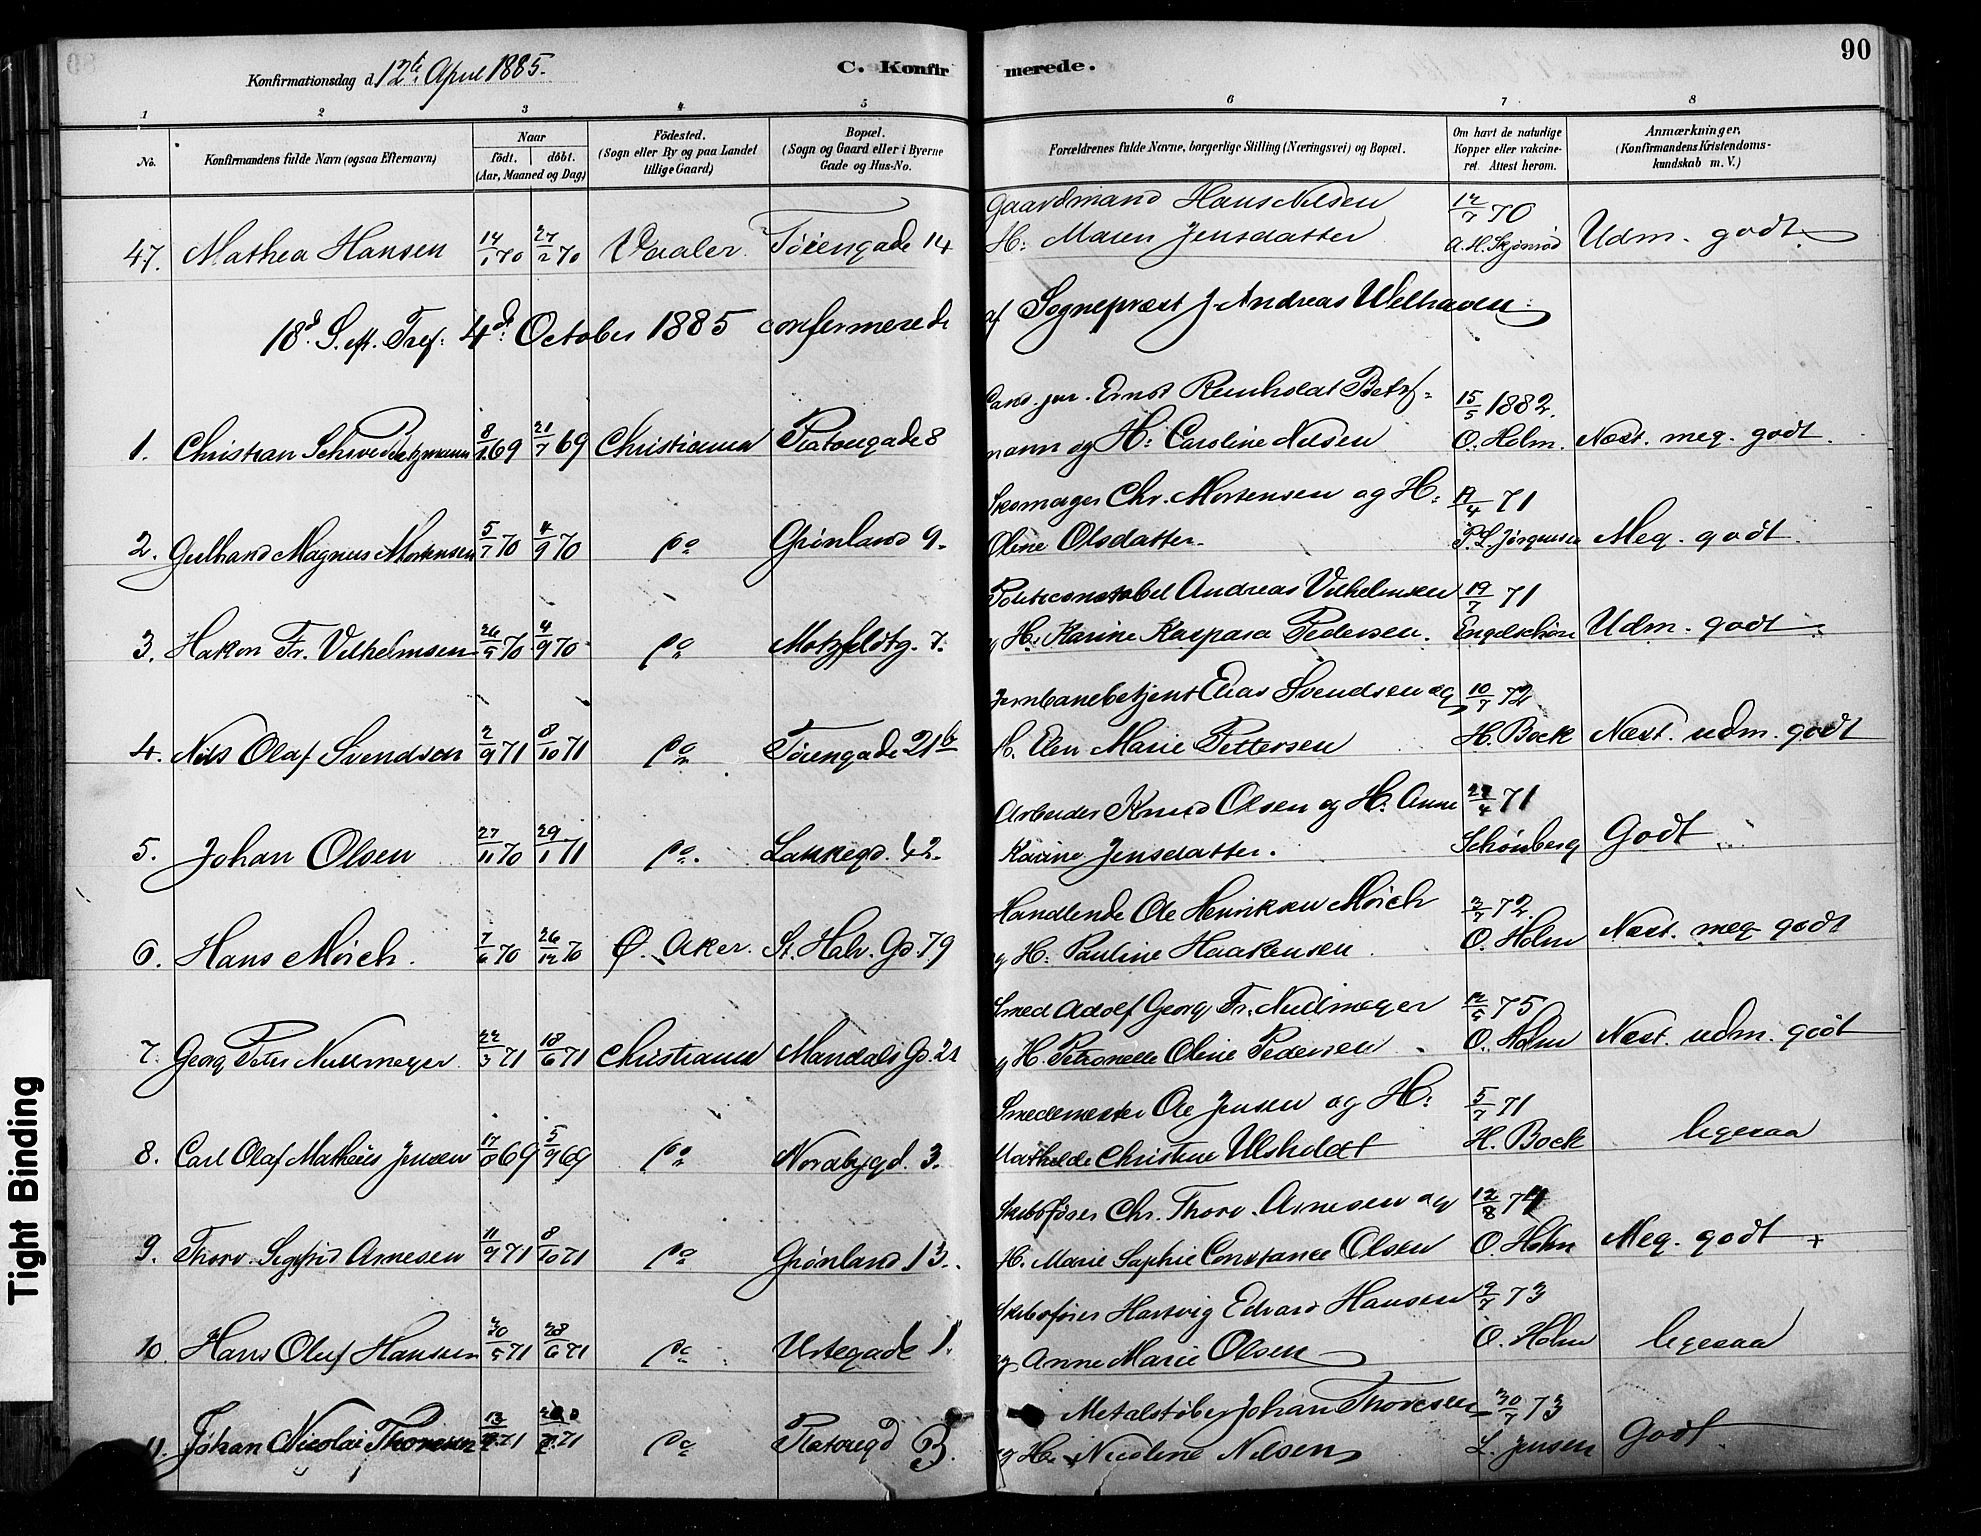 Konfirmationsdag d. 12te April 1885.
C. Konfirmerede.
90
1 2 3 4 5 6 7 8
No.
Konfirmandens fulde Navn (ogsaa Efternavn)
Naar
födt. döbt.
(Aar, Maaned og Dag)
Födested.
(Sogn eller By og paa Landet
tillige Gaard)
Bopæl.
(Sogn og Gaard eller i Byerne
Gade og Hus-No.
Forældrenes fulde Navne, borgerlige Stilling (Næringsvei) og Bopæl.
Om havt de naturlige
Kopper eller vakcine-
ret. Attest herom.
Anmærkninger,
(Konfirmandens Kristendoms-
kundskab m. V.)
Gaardmand Hans Nilsen 14/7 70
47. Mathea Hansen 14/1 70 27/2 70 Vaaler Töiengade 14 H: Maren Jensdatter A. H. Skjönrød Udm. godt
18d. S. eft. Tref: 4d. October 1885 confirmerede af Sognepræst J. Andreas Welhaven
Cand. jur. Ernst Reinholdt Betz- 15/5 1882.
1. Christian Schwed Betzmann 8/1 69 21/7 69 Christiania Platougade 8 mann og H: Caroline Nilsen O. Holm. Næst. meg. godt.
Skomager Chr. Mortensen og H: 19/4 71
2. Gulbrand Magnus Mortensen 5/7 70 4/9 70 do Grönland 9. Oline Olsdatter. P. L. Jörgensen Meg. godt.
Politiconstabel Andreas Vilhelmsen 19/7 71
3. Hakon Fr. Vilhelmsen 26/5 70 4/9 70 do Motzfeldtg. 7. og H: Karine Kaspara Pedersen. Engelschön Udm. godt
Jernbanebetjent Elias Svendsen og 10/7 72
4. Nils Olaf Svendsen 2/9 71 8/10 71 do Töiengade 21b H. Elen Marie Pettersen H. Bock Næst. udm. godt
Arbeider Knud Olsen og H. Anne 27/4 71
5. Johan Olsen 27/11 70 29/1 71 do. Lakkegd. 42. Karine Jensdatter. Schönberg Godt
Handlende Ole Henriksen Mörch 3/7 72.
6. Hans Mörch. 7/6 70 26/12 70 Ö. Aker. St. Halv. Gd. 79 og H: Pauline Haakensen. O. Holm Næst. meg godt
Smed Adolf Georg Fr. Nullmeyer 12/5 75
7. Georg Peter Nullmeyer 22/3 71 18/6 71 Christiania Mandals Gd. 21 og H. Petronelle Oline Pedersen O. Holm Næst. udm. godt
Smedemester Ole Jensen og H: 5/7 71
8. Carl Olaf Matheus Jensen 17/8 69 5/9 69 do Nordbygd. 3. Mathilde Christine Ulsholdt H. Bock ligesaa
Skibsförer Chr. Thorv. Arnesen og 12/8 74
9. Thorv. Sigfrid Arnesen 11/9 71 8/10 71 do Grönland 13. H. Marie Sophie Constance Olsen O. Holm Meg. godt +
Skibsförer Hartvig Edvard Hansen 9/7 73
10. Hans Oluf Hansen 30/5 71 28/6 71 do Urtegade 1. og Anne Marie Olsen O. Holm ligesaa
Metalstöber Johan Thoresen 30/7 73
11. Johan Nicolai Thoresen 71 71 do Platougd 3. og H: Nicoline Nilsen L. Jensen Godt.
Tight Binding